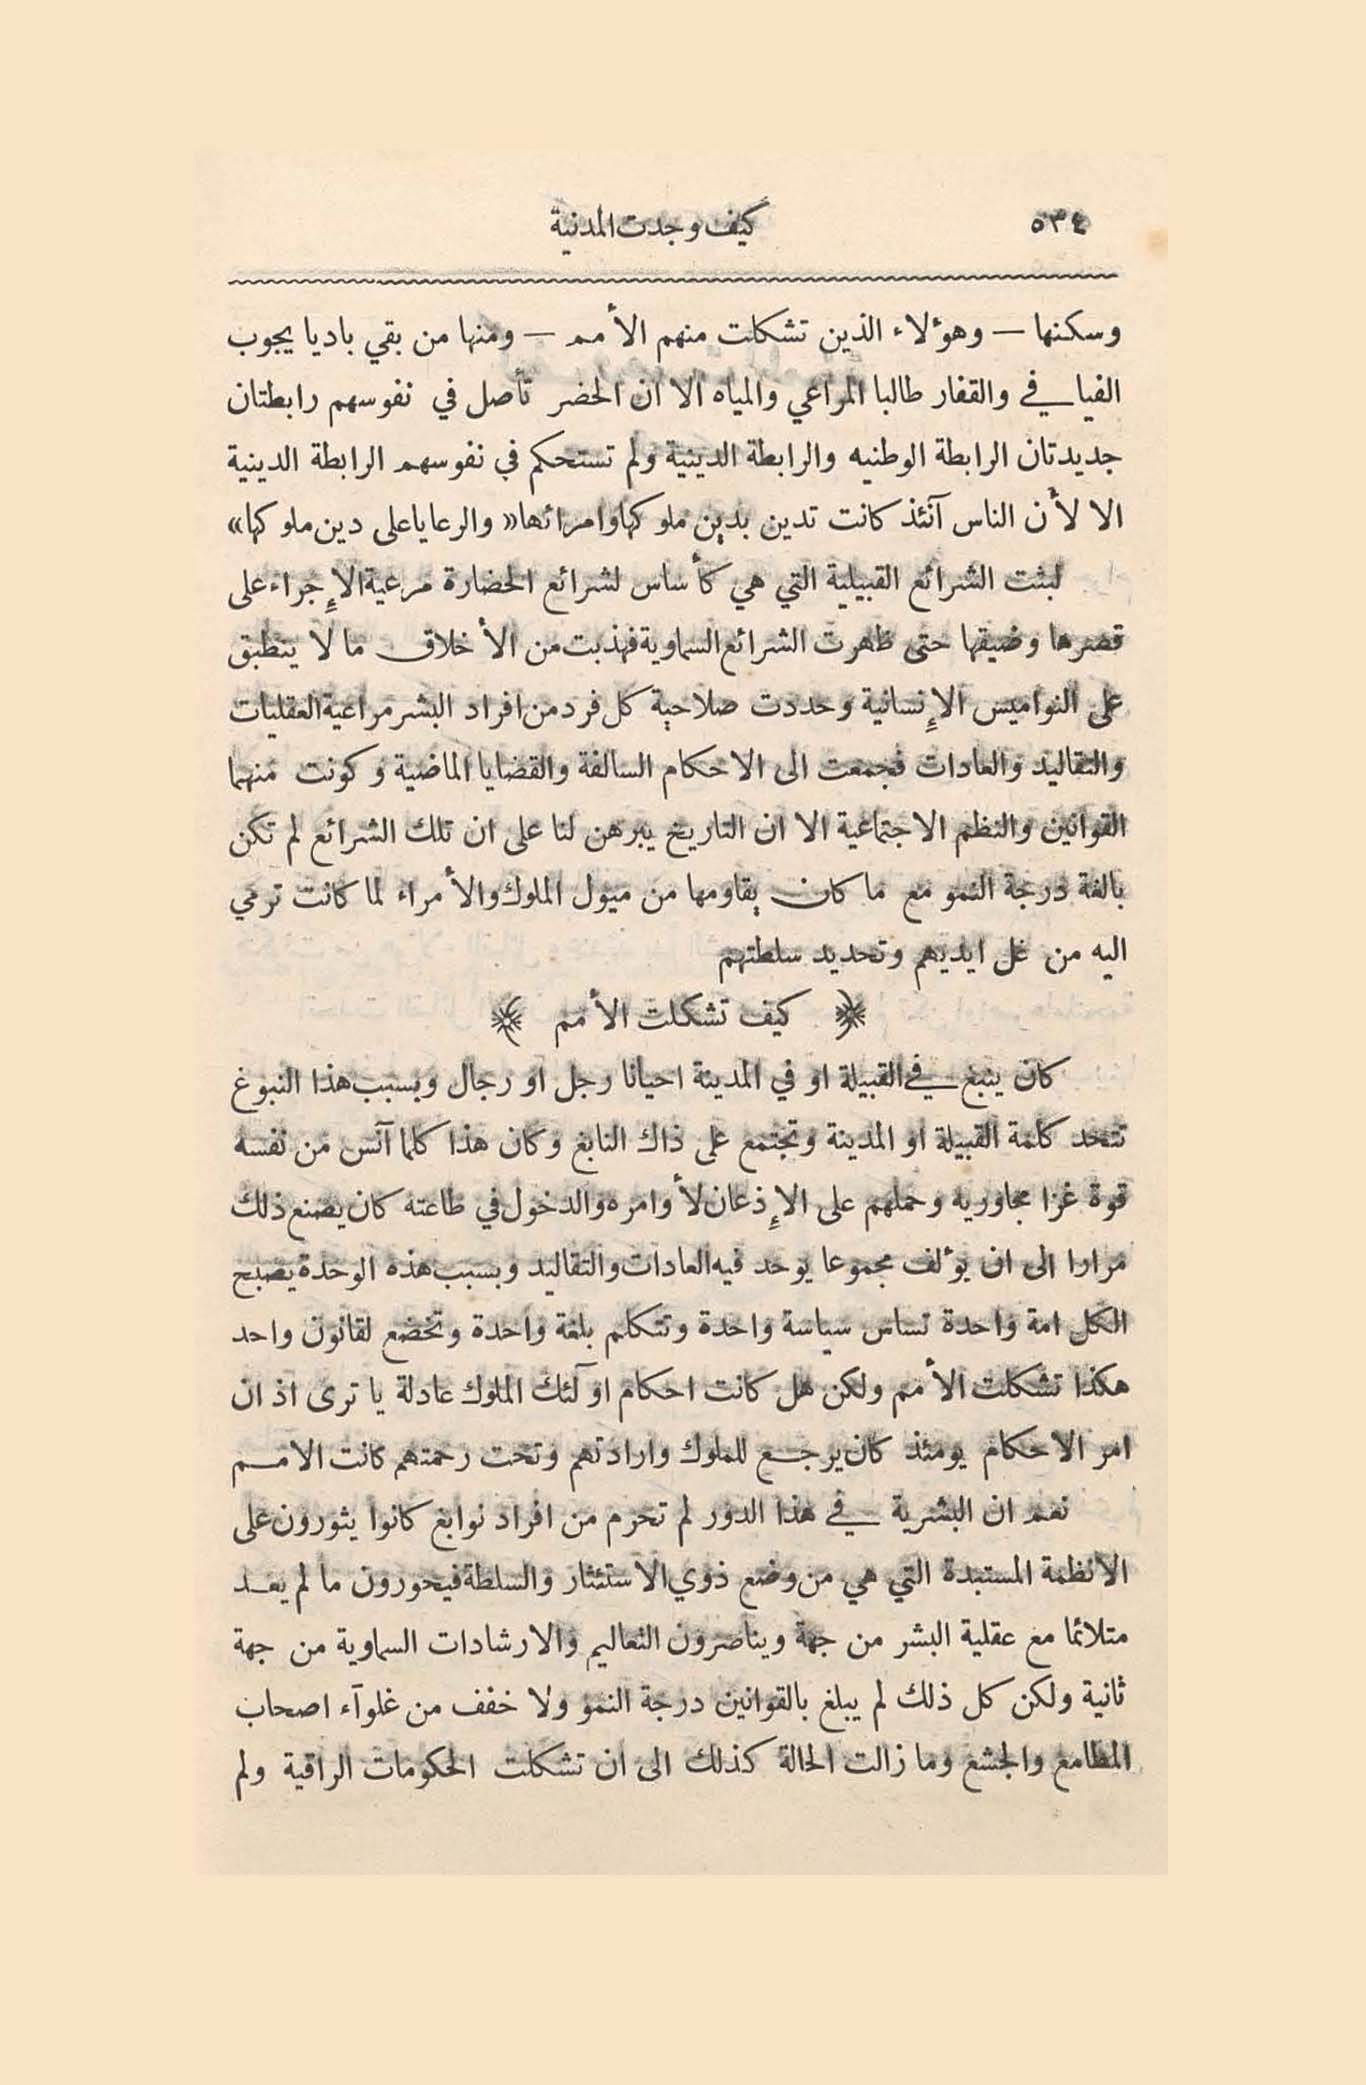 ٥٣٤ كيف وجدت المدنية
وسكنها — وهوٴلاء الذين تشكلت منهم الأمم — ومنها من بقي باديا يجوب
الفيافي والقفار طالبا المراعي والمياه الا ان الحضر تأصل في نفوسهم رابطتان
جديدتان الرابطة الوطنيه والرابطة الدينية ولم تستحكم في نفوسهم الرابطة الدينية
الا لأن الناس آنئذ كانت تدين بدين ملوكها وامرائها «والرعايا على دين ملوكها»
لبثت الشرائع القبيلية التي هي كأساس لشرائع الحضارة مرعية الإجراء على
قصرها وضيقها حتى ظهرت الشرائع السماوية فهذبت من الأخلاق ما لا ينطبق
على النواميس الإنسانية وحددت صلاحية كل فرد من افراد البشر مراعية العقليات
والتقاليد والعادات فجمعت الى الاحكام السالفة والقضايا الماضية وكونت منهما
القوانين والنظم الاجتماعية الا ان التاريخ يبرهن لنا على ان تلك الشرائع لم تكن
بالغة درجة النمو مع ما كان يقاومها من ميول الملوك والأمراء لما كانت ترمي
اليه من غل ايديهم وتحديد سلطتهم
﴿ كيف تشكلت الأمم ﴾
كان ينبغ في القبيلة او في المدينة احيانا رجل او رجال وبسبب هذا النبوغ
تتحد كلمة القبيلة او المدينة وتجتمع على ذاك النابغ وكان هذا كلما آنس من نفسه
قوة غزا مجاوريه وحملهم على الإذعان لأوامره والدخول في طاعته كان يصنع ذلك
مرارا الى ان يوٴلف مجموعا يوحد فيه العادات والتقاليد وبسبب هذه الوحدة يصبح
الكل امة واحدة تساس سياسة واحدة وتتكلم بلغة واحدة وتخضع لقانون واحد
هكذا تشكلت الأمم ولكن هل كانت احكام اولئك الملوك عادلة يا ترى اذ ان
امر الاحكام يومئذ كان يرجع للملوك وارادتهم وتحت رحمتهم كانت الامم
نعم ان البشرية في هذا الدور لم تحرم من افراد نوابغ كانوا يثورون على
الانظمة المستبدة التي هي من وضع ذوي الاستئثار والسلطة فيحورون ما لم يعد
متلائما مع عقلية البشر من جهة ويناصرون التعاليم والارشادات السماوية من جهة
ثانية ولكن كل ذلك لم يبلغ بالقوانين درجة النمو ولا خفف من غلوآء اصحاب
المطامع والجشع وما زالت الحالة كذلك الى ان تشكلت الحكومات الراقية ولم